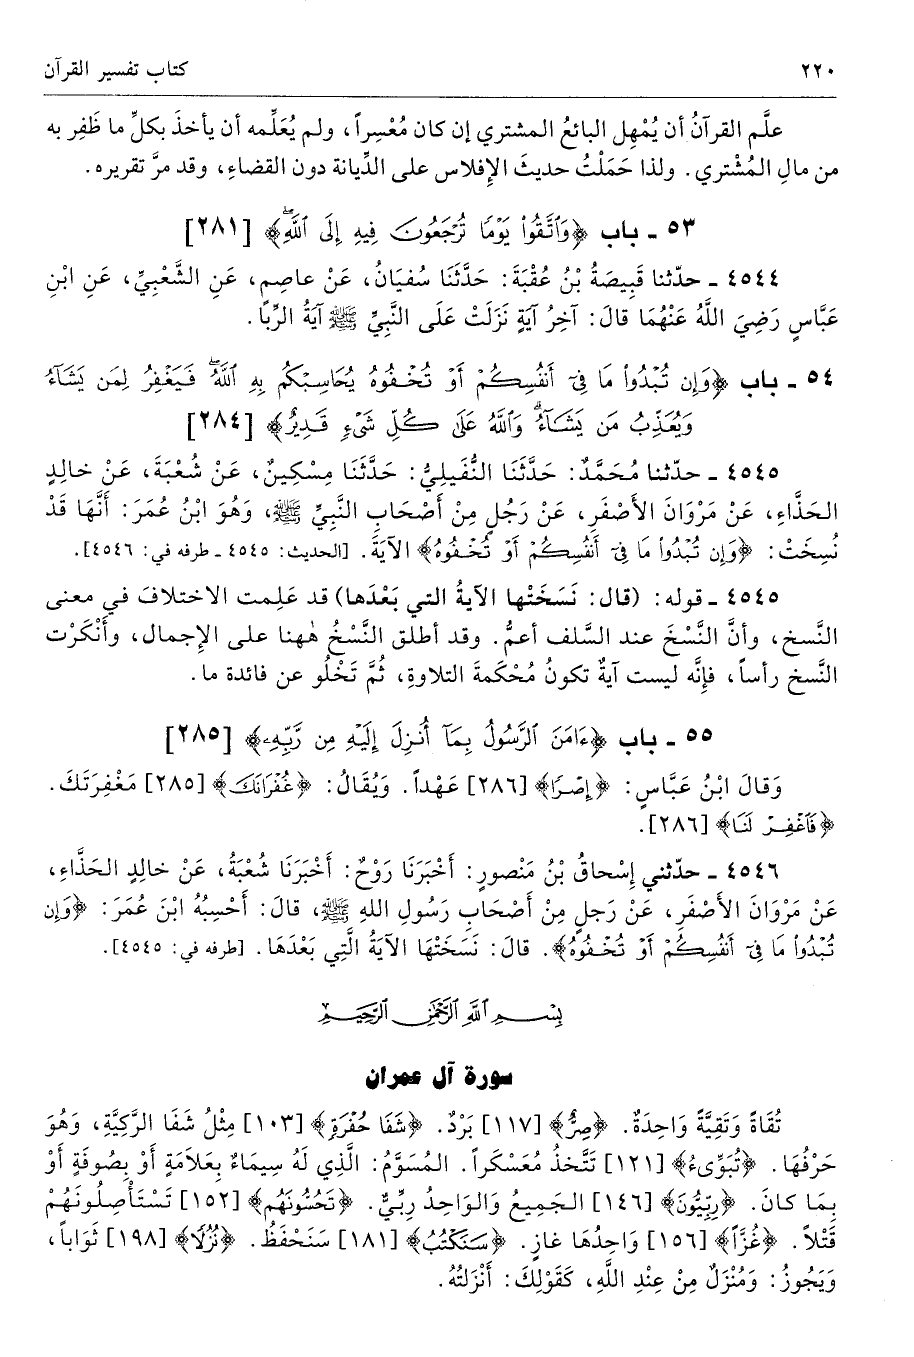 ٢٢٠ كتاب تفسير القرآن
علَّم القرآنُ أن يُمْهِل البائعُ المشتري إن كان مُعْسِراً، ولم يُعَلِّمه أن يأخذَ بكلِّ ما ظَفِر به
من مالِ المُشْتري. ولذا حَمَلْتُ حديثَ الإِفلاس على الدِّيانة دون القضاءِ، وقد مرَّ تقريره.
٥٣ ـ باب ﴿وَٱتَّقُوا۟ يَوْمًا تُرْجَعُونَ فِيهِ إِلَى ٱللَّهِۖ﴾ [٢٨١]
٤٥٤٤ ـ حدّثنا قَبِيصَةُ بْنُ عُقْبَةَ: حَدَّثَنَا سُفيَانُ، عَنْ عاصِمٍ، عَنِ الشَّعْبِيِّ، عَنِ ابْنِ
عَبَّاسٍ رَضِيَ اللَّهُ عَنْهُمَا قالَ: آخِرُ آيَةٍ نَزَلَتْ عَلَى النَّبِيِّ ﷺ آيَةُ الرِّبَا.
٥٤ ـ باب ﴿وَإِن تُبْدُوا۟ مَا فِىٓ أَنفُسِكُمْ أَوْ تُخْفُوهُ يُحَاسِبْكُم بِهِ ٱللَّهُۖ فَيَغْفِرُ لِمَن يَشَآءُ
وَيُعَذِّبُ مَن يَشَآءُۗ وَٱللَّهُ عَلَىٰ كُلِّ شَىْءٍ قَدِيرٌ﴾ [٢٨٤]
٤٥٤٥ ـ حدّثنا مُحَمَّدٌ: حَدَّثَنَا النُّفَيلِيُّ: حَدَّثَنَا مِسْكِينٌ، عَنْ شُعْبَةَ، عَنْ خالِدٍ
الحَذَّاءِ، عَنْ مَرْوَانَ الأَصْفَرِ، عَنْ رَجُلٍ مِنْ أَصْحَابِ النَّبِيِّ ﷺ، وَهُوَ ابْنُ عُمَرَ: أَنَّهَا قَدْ
نُسِخَتْ: ﴿وَإِن تُبْدُوا۟ مَا فِىٓ أَنفُسِكُمْ أَوْ تُخْفُوهُ﴾ الآيَةَ. [الحديث: ٤٥٤٥ ـ طرفه في: ٤٥٤٦].
٤٥٤٥ ـ قوله: (قال: نَسَخَتْها الآيةُ التي بَعْدَها) قد عَلِمت الاختلافَ في معنى
النَّسخ، وأنَّ النَّسْخَ عند السَّلف أعمُّ. وقد أطلق النَّسْخُ هٰهنا على الإجمال، وأَنْكَرْت
النَّسخ رأساً، فإنَّه ليست آيةٌ تكونُ مُحْكَمةَ التلاوةِ، ثُمَّ تَخْلُو عن فائدة ما.
٥٥ ـ باب ﴿ءَامَنَ ٱلرَّسُولُ بِمَآ أُنزِلَ إِلَيْهِ مِن رَّبِّهِۦ﴾ [٢٨٥]
وَقالَ ابْنُ عَبَّاسٍ: ﴿إِصْرًا﴾ [٢٨٦] عَهْداً. وَيُقَالُ: ﴿غُفْرَانَكَ﴾ [٢٨٥] مَغْفِرَتَكَ.
﴿فَٱغْفِرْ لَنَا﴾ [٢٨٦].
٤٥٤٦ ـ حدّثني إِسْحاقُ بْنُ مَنْصورٍ: أَخْبَرَنَا رَوْحٌ: أَخْبَرَنَا شُعْبَةُ، عَنْ خالِدٍ الحَذَّاءِ،
عَنْ مَرْوَانَ الأَصْفَرِ، عَنْ رَجلٍ مِنْ أَصْحَابِ رَسُولِ اللهِ ﷺ، قالَ: أَحْسِبُهُ ابْنَ عُمَرَ: ﴿وَإِن
تُبْدُوا۟ مَا فِىٓ أَنفُسِكُمْ أَوْ تُخْفُوهُ﴾. قالَ: نَسَخَتْهَا الآيَةُ الَّتِي بَعْدَهَا. [طرفه في: ٤٥٤٥].
بِسْمِ ٱللَّهِ ٱلرَّحْمَٰنِ ٱلرَّحِيمِ
سورة آل عمران
تُقَاةً وَتَقِيَّةً وَاحِدَةٌ. ﴿صِرٌّ﴾ [١١٧] بَرْدٌ. ﴿شَفَا حُفْرَةٍ﴾ [١٠٣] مِثْلُ شَفَا الرَّكِيَّةِ، وَهُوَ
حَرْفُهَا. ﴿تُبَوِّىءُ﴾ [١٢١] تَتَّخذُ مُعَسْكَراً. المُسَوَّمُ: الَّذِي لَهُ سِيمَاءٌ بِعَلاَمَةٍ أَوْ بِصُوفَةٍ أَوْ
بِمَا كانَ. ﴿رِبِّيُّونَ﴾ [١٤٦] الجَمِيعُ وَالوَاحِدُ رِبِّيٌّ. ﴿تَحُسُّونَهُم﴾ [١٥٢] تَسْتَأْصِلُونَهُمْ
قَتْلاً. ﴿غُزًّا﴾ [١٥٦] وَاحِدُهَا غازٍ. ﴿سَنَكْتُبُ﴾ [١٨١] سَنَحْفَظُ. ﴿نُزُلًا﴾ [١٩٨] ثَوَاباً،
وَيَجُوزُ: وَمُنْزَلٌ مِنْ عِنْدِ اللَّهِ، كَقَوْلِكَ: أَنْزَلتُهُ.